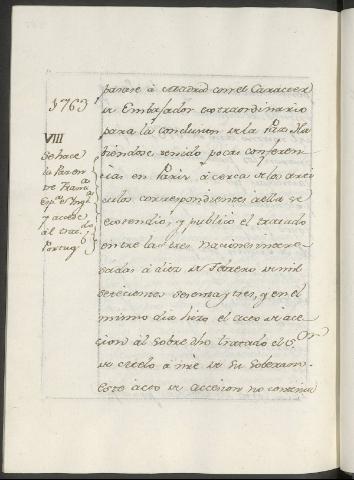 1763
VIII
Se hace
la Paz en
tre Franc.a
Esp.a e Yngl.a
y accede
al trat.do
Portug.
pasase á Madrid con el Caracter
de Embajador extraordinario
para la conclusion de la Paz. Ha
biendose tenido pocas conferen
cias en Paris á cerca de los arti
culos correspondientes á ella se
extendió, y publicó el tratado
entre las tres naciones intere
sadas á diez de Febrero de mil
setecientos sesenta y tres, y en el
mismo dia hizo el acto de acce
cion al sobre dho tratado el S.or
de Mello á nre de su Soberano.
Este acto de accesion no contenia